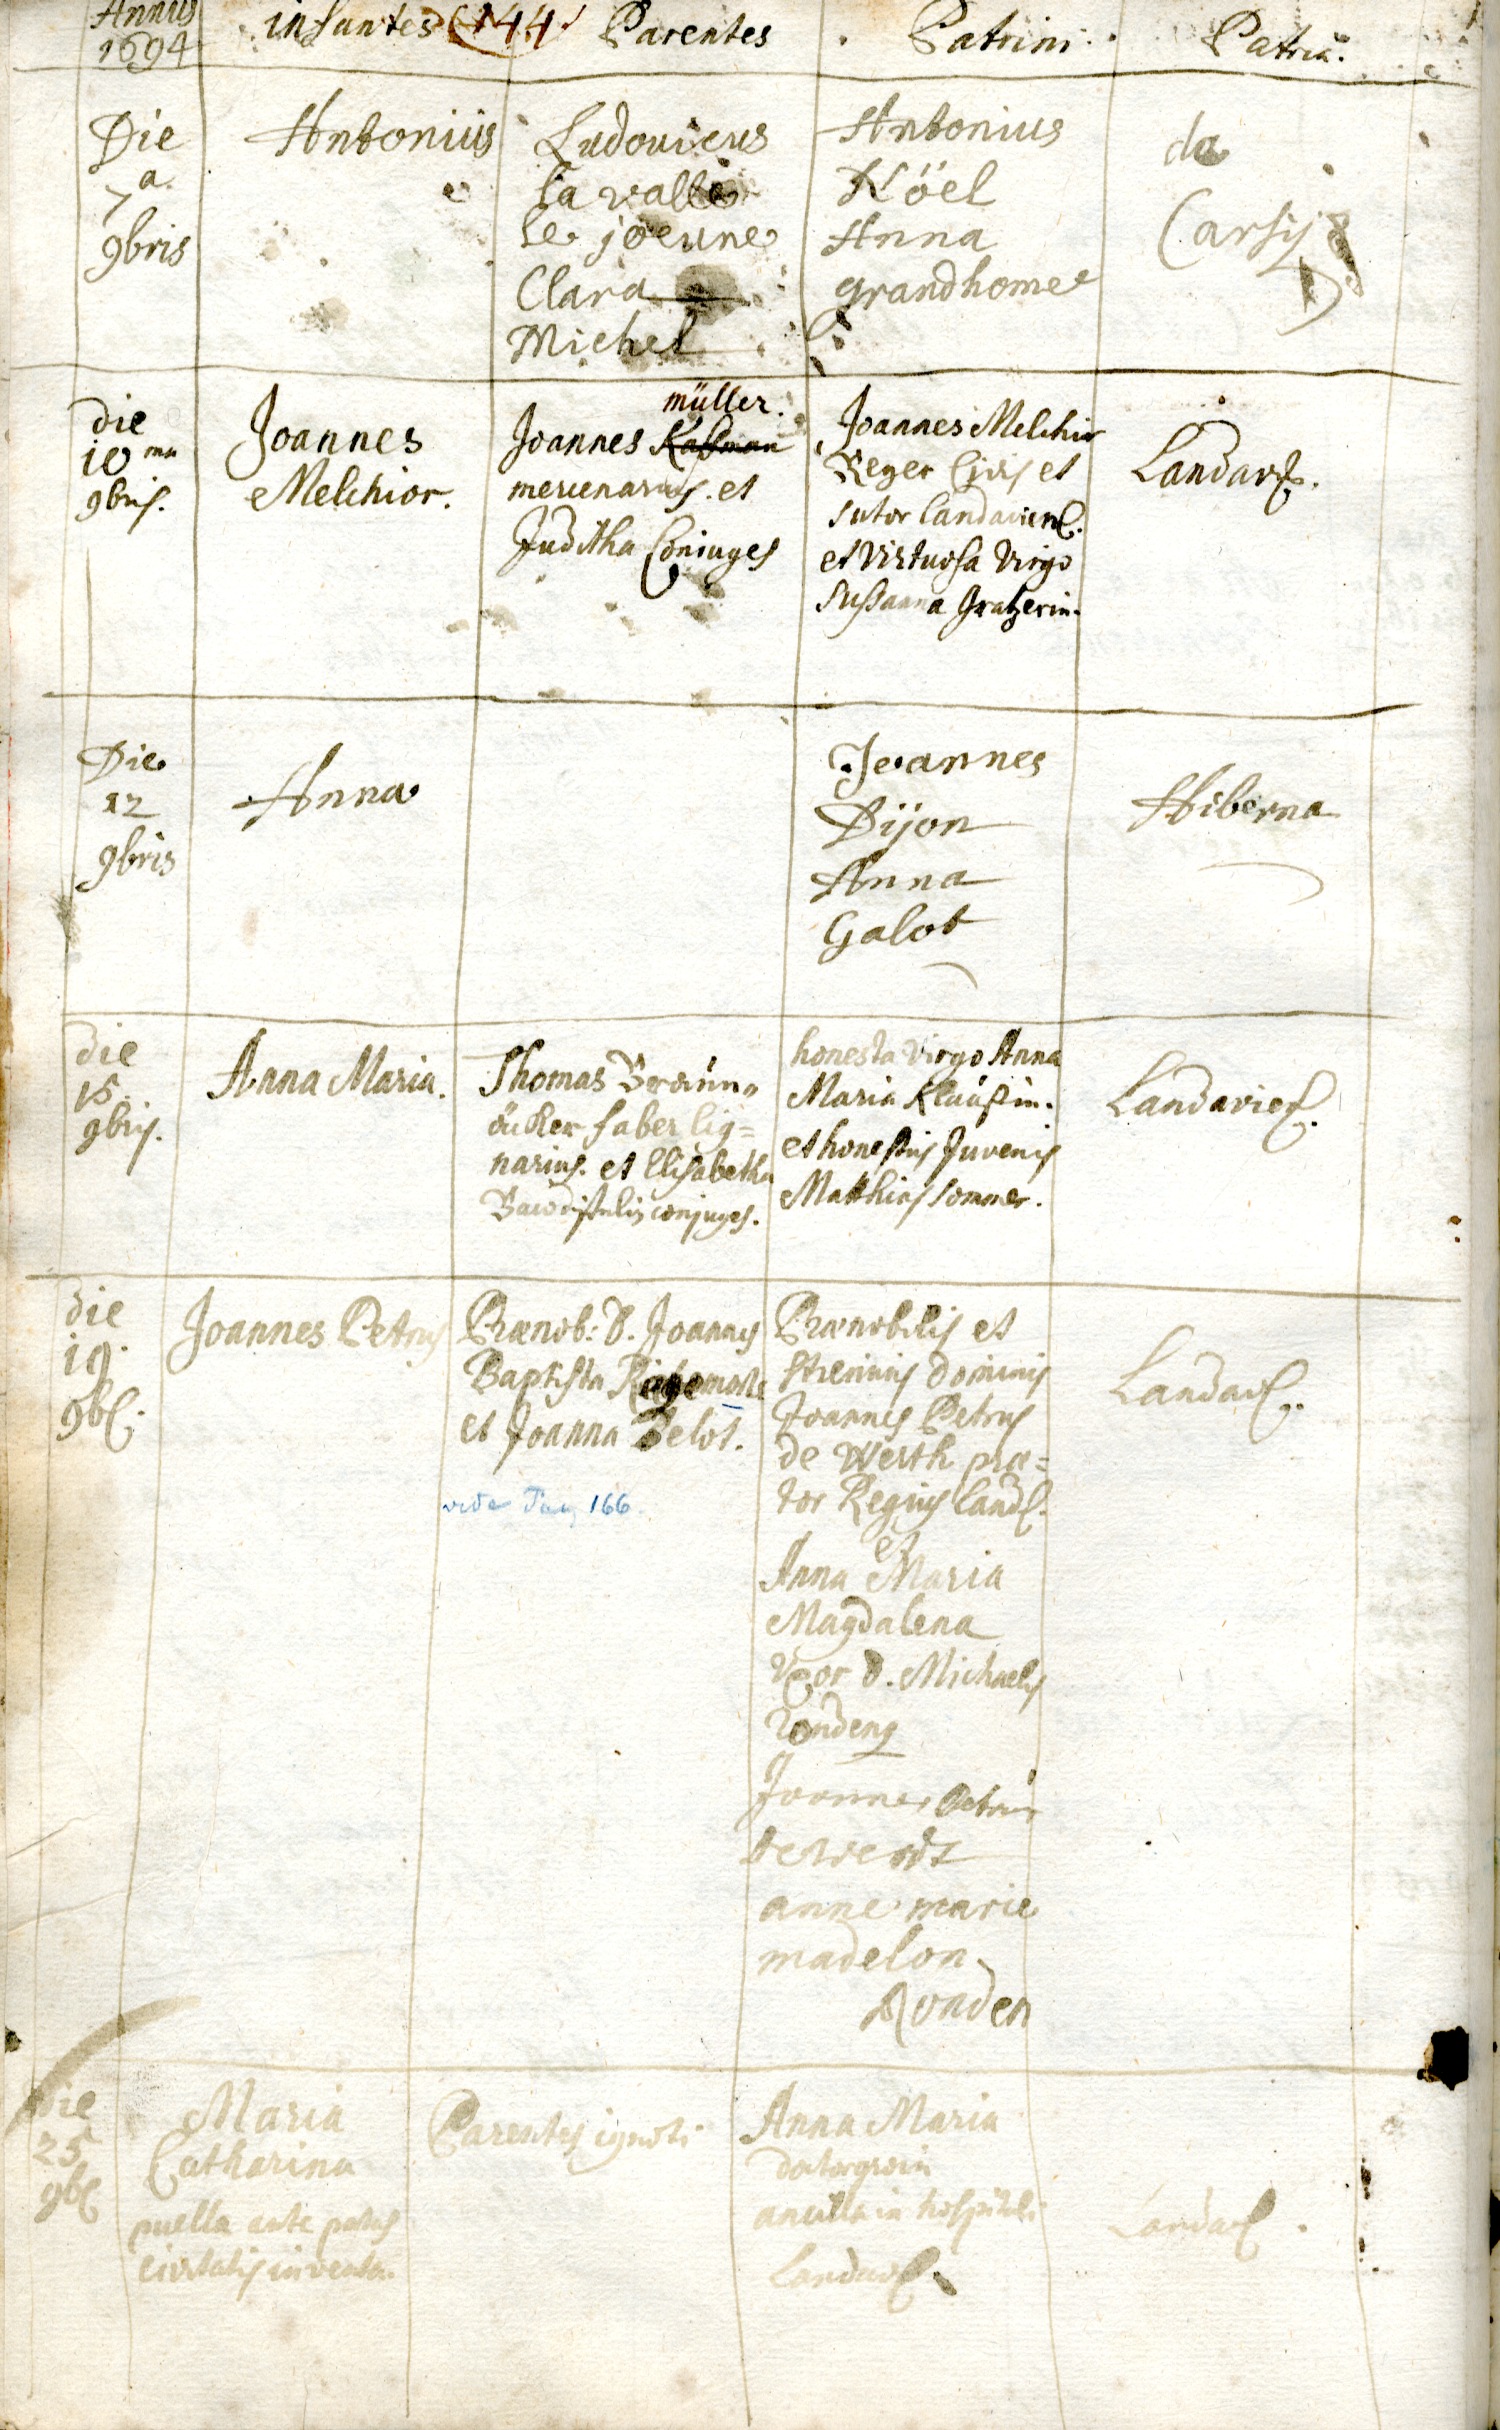 Annus infantes 144 Parentes Patrini. Patria.
1694
Die
7a
9bris
Antonius
Ludovicus
la valle
le joeune
Clara
Michel
Antonius
Nöel
Anna
grandhome
da
Carsy
die
10ma
9bris.
Joannes
Melchior.
müller.
Joannes Kassman
mercenarius. et
Juditha Coniuges
Joannes Melchior
Reger Civis et
sutor landaviens.
et virtuosa virgo
Sussanna Gratzerin.
Landavs.
Die
12
9bris
Anna
Joannes
Dijon
Anna
Galot
Hiberna
die
15.
9bris.
Anna Maria.
Thomas Braün
äcker faber lig=
narius. et Elisabetha
conjuges.
honesta virgo Anna
Maria Klaußin.
et honestus Juvenis
Matthias Sommer.
Landavies.
die
19.
9bs.
Joannes Petrus
Prænob: D. Joannes
Baptista
et Joanna Belot.
vide Pag 166.
Prænobilis et
strenuus dominus
Joannes Petrus
de Werth præ=
tor Regius Lands.
et
Anna Maria
Magdalena
Uxor D. Michaelis
Rondeng
Joannes Petrus
de werdt
anne marie
madelon
Ronden
Landavs.
die
25
9bs
Maria
Catharina
puella ante portas
civitatis inventa.
Parentes ignoti
Anna Maria
ancilla in hospitali
Landavs.
Landavs.